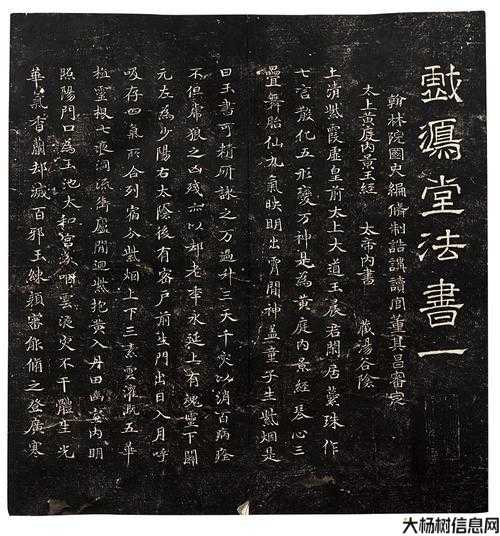 戲鴻堂法書一
翰林院國史編脩制誥講讀官董其昌審定
太上黃庭內景玉經 太帝內書 藏湯谷陰
上清紫霞虛皇前太上大道玉晨君閑居蘂珠作
七言散化五形變万神是為黃庭內景經琴心三
疊舞胎仙九氣映明出霄間神盖童子生紫烟是
曰玉書可精研詠之万過升三天千灾以消百病痊
不但虎狼之凶殘亦以却老年永延上有魂靈下關
元左為少陽右太陰後有密戶前生門出日入月呼
吸存四氣所合列宿分紫烟上下三素雲灌溉五華
植靈根七液洞流衝廬間迴紫抱黃入丹田幽室內明
照陽門口為玉池太和宮漱咽靈液灾不干體生光
華氣香蘭却滅百邪玉練顏審能脩之登廣寒
大杨树信息网